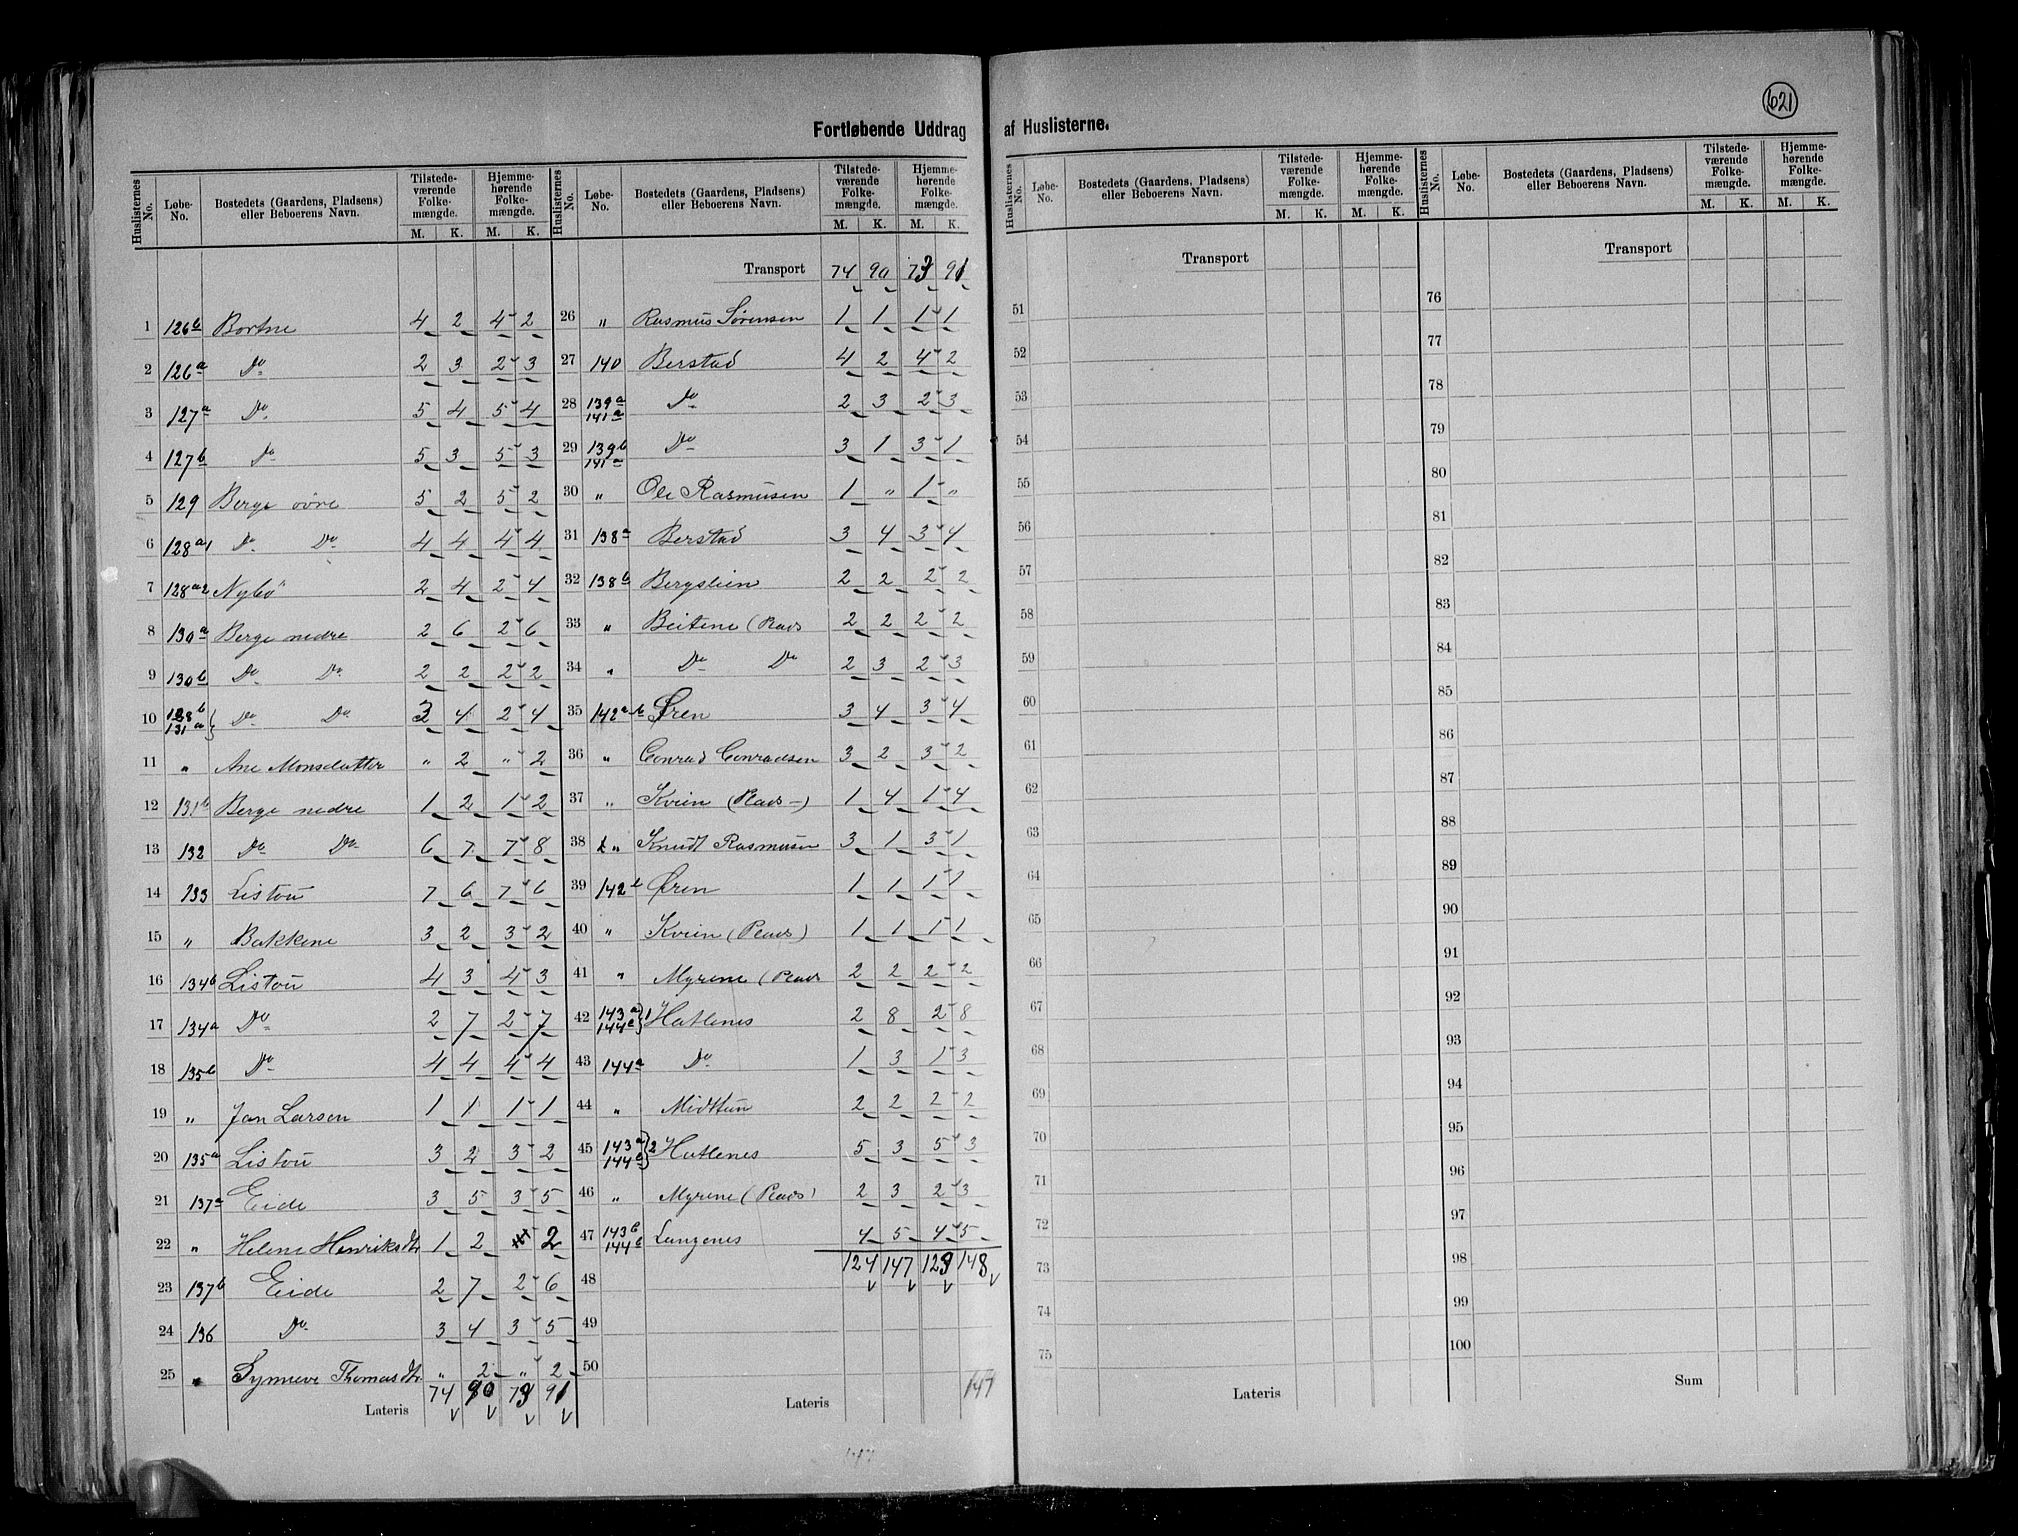 621
Fortløbende Uddrag af Huslisterne.
Huslisternes No. Løbe-No. Bostedets (Gaardens, Pladsens) eller Beboerens Navn. Tilstedeværende Folkemængde. M. K. Hjemmehørende Folkemængde. M. K.
1 126b Bortne 4 2 4 2
2 126a Do 2 3 2 3
3 127a Do 5 4 5 4
4 127b Do 5 3 5 3
5 129 Berge övre 5 2 5 2
6 128a1 Do Do 4 4 4 4
7 128a2 Nybö 2 4 2 4
8 130a Berge nedre 2 6 2 6
9 130b Do Do 2 2 2 2
10 128b 131a } Do Do 2 4 2 4
11 " Ane Monsdatter " 2 " 2
12 131b Berge nedre 1 2 1 2
13 132 Do Do 6 7 7 8
14 133 Listou 7 6 7 6
15 " Bakkene 3 2 3 2
16 134b Listou 4 3 4 3
17 134a Do 2 7 2 7
18 135b Do 4 4 4 4
19 " Jan Larsen 1 1 1 1
20 135a Listou 3 2 3 2
21 137a Eide 3 5 3 5
22 " Helene Henriksdtr 1 2 2
23 137b Eide 2 7 2 6
24 136 Do 3 4 3 5
25 " Synneve Thomasdtr " 2 " 2
Lateris 74 90 73 91
Huslisternes No. Løbe-No. Bostedets (Gaardens, Pladsens) eller Beboerens Navn. Tilstedeværende Folkemængde. M. K. Hjemmehørende Folkemængde. M. K.
Transport 74 90 73 91
26 " Rasmus Sørensen 1 1 1 1
27 140 Berstad 4 2 4 2
28 139a 141a Do 2 3 2 3
29 139b 141a Do 3 1 3 1
30 " Ole Rasmusen 1 " 1 "
31 138a Berstad 3 4 3 4
32 138b Bergslien 2 2 2 2
33 " Beitene (Plads 2 2 2 2
34 " Do Do 2 3 2 3
35 142a Øren 3 4 3 4
36 " Conrad Conradsen 3 2 3 2
37 " Kvien (Plads-) 1 4 1 4
38 " Knudt Rasmusen 3 1 3 1
39 142b Øren 1 1 1 1
40 " Kvien (Plads) 1 1 1 1
41 " Myrene (Plads 2 2 2 2
42 143a 144a } 1 Hatlenes 2 8 2 8
43 144a Do 1 3 1 3
44 " Midttun 2 2 2 2
45 143a 144a } 2 Hatlenes 5 3 5 3
46 " Myrene (Plads) 2 3 2 3
47 143b 144b Langenes 4 5 4 5
48 124 147 123 148
49
50
Lateris 147
147
Huslisternes No. Løbe-No. Bostedets (Gaardens, Pladsens) eller Beboerens Navn. Tilstedeværende Folkemængde. M. K. Hjemmehørende Folkemængde. M. K.
Transport
51
52
53
54
55
56
57
58
59
60
61
62
63
64
65
66
67
68
69
70
71
72
73
74
75
Lateris
Huslisternes No. Løbe-No. Bostedets (Gaardens, Pladsens) eller Beboerens Navn. Tilstedeværende Folkemængde. M. K. Hjemmehørende Folkemængde. M. K.
Transport
76
77
78
79
80
81
82
83
84
85
86
87
88
89
90
91
92
93
94
95
96
97
98
99
100
Sum